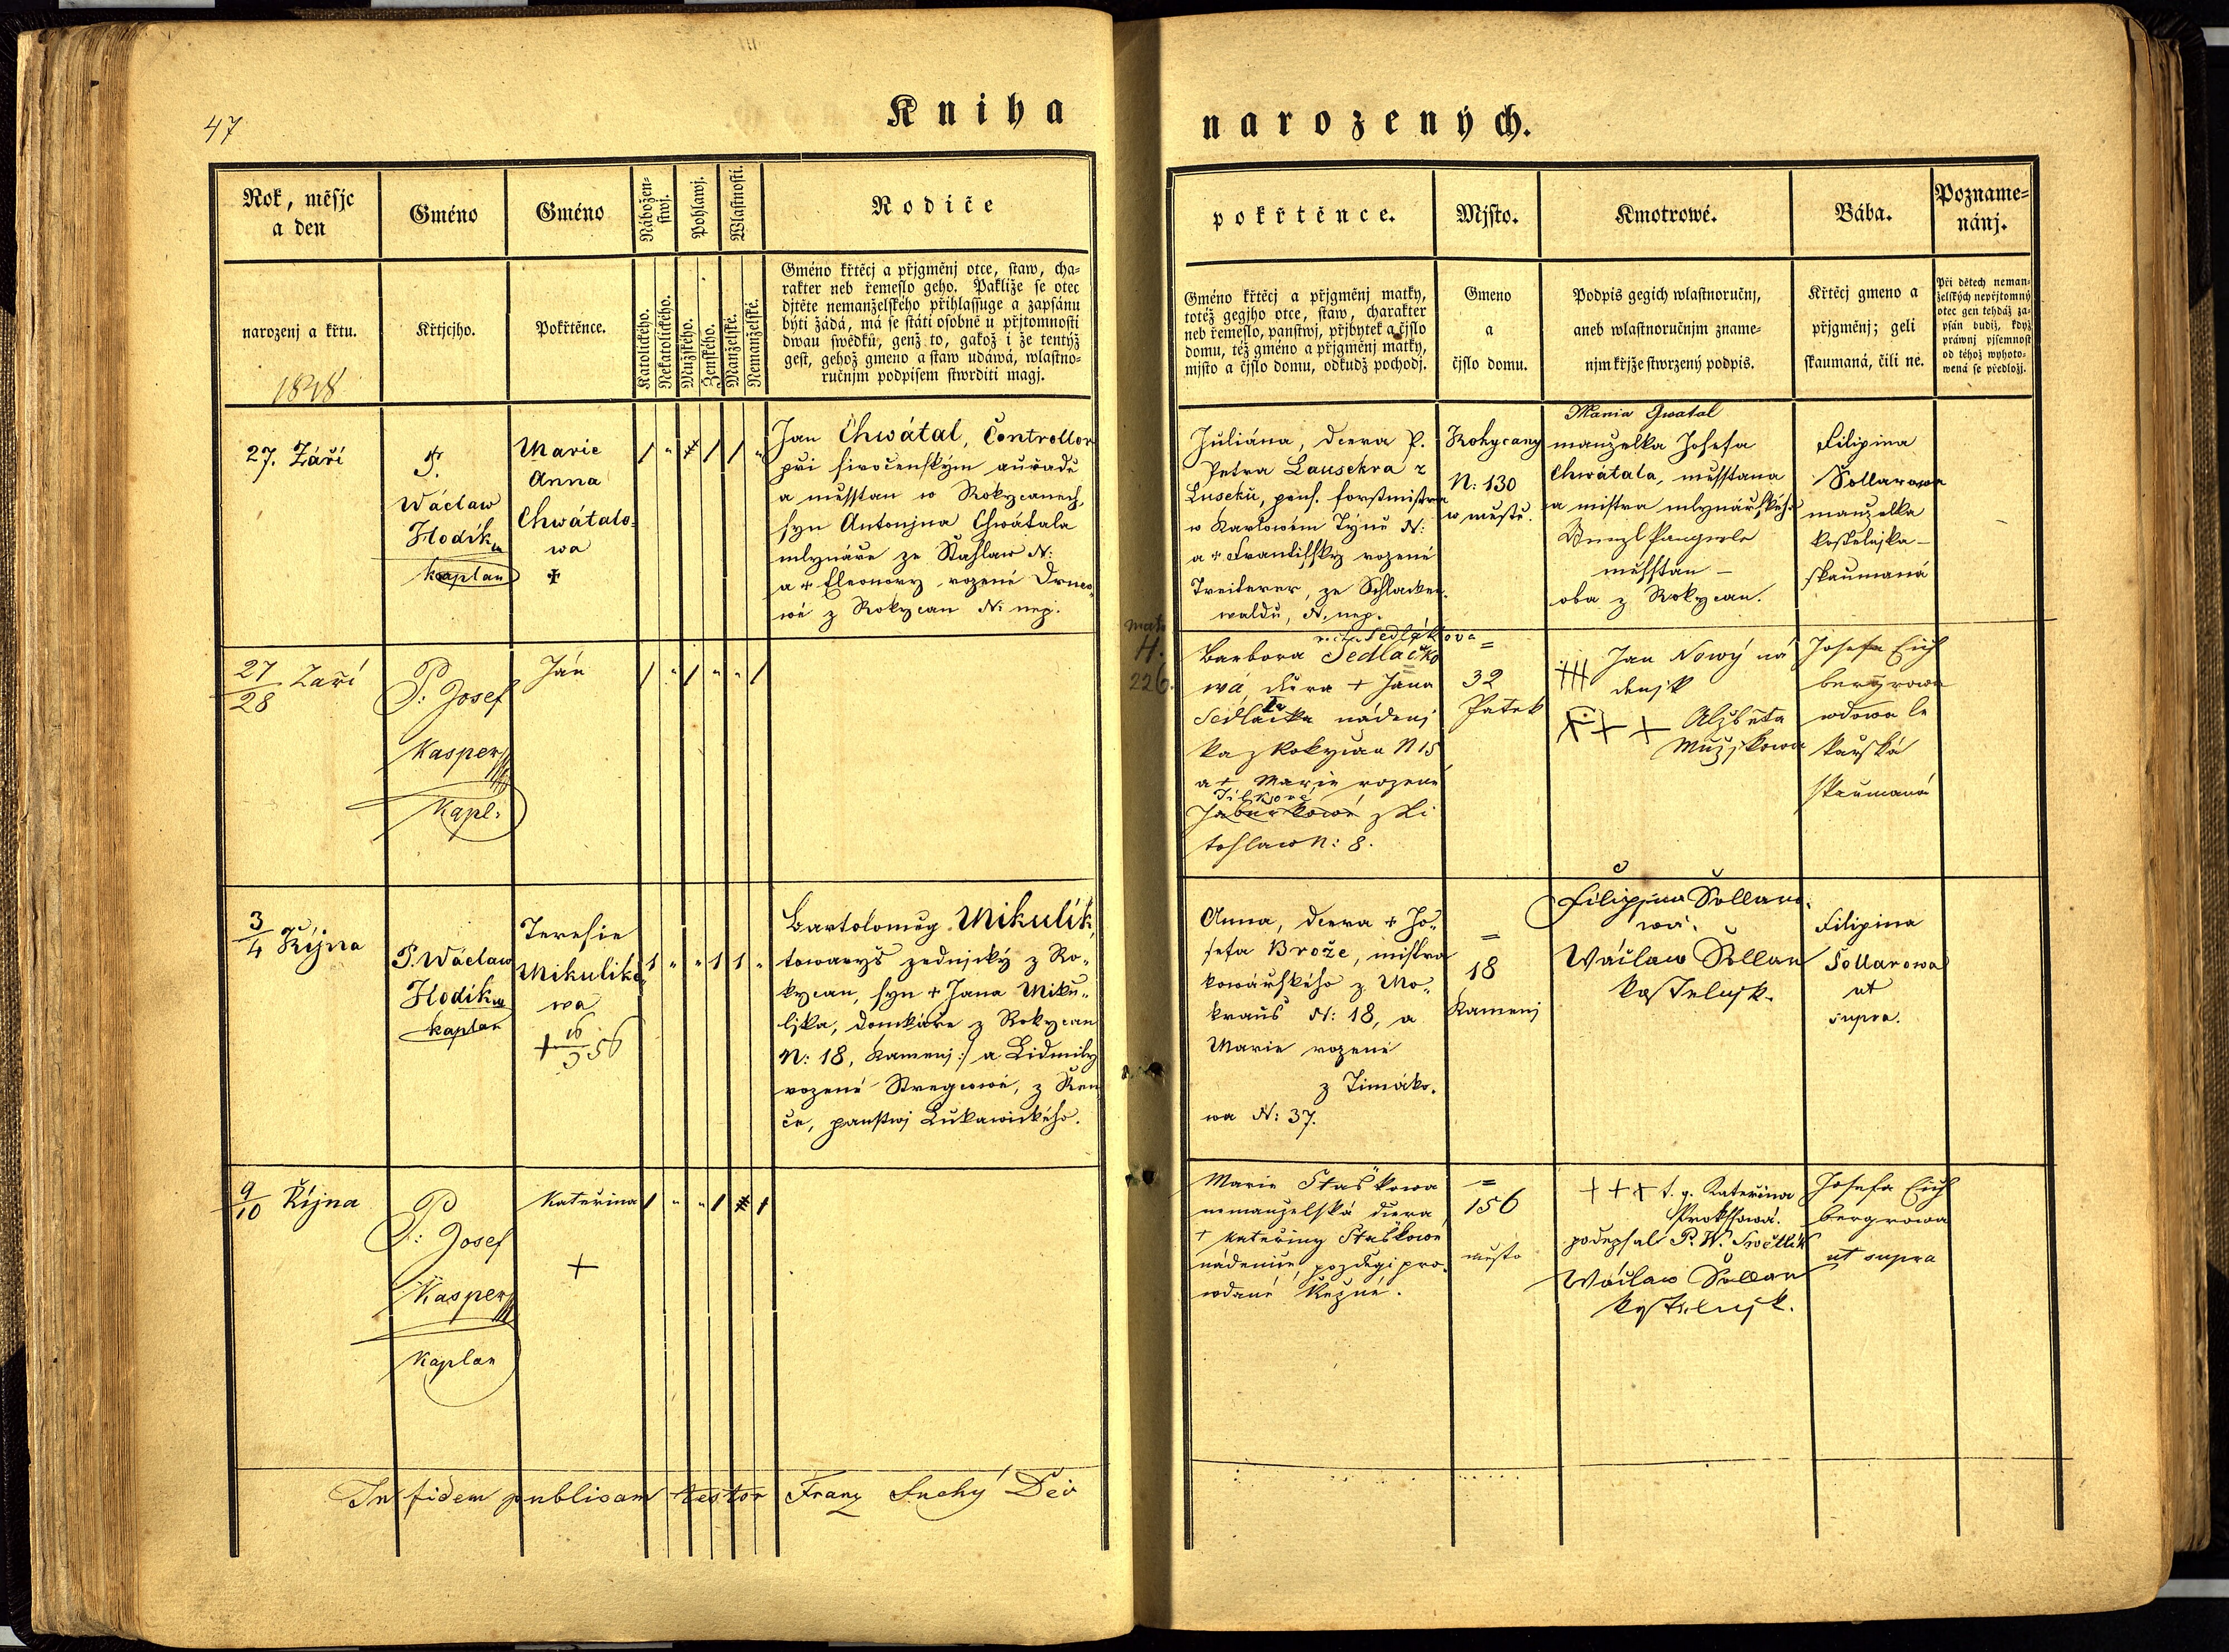 47
Kniha
narozených.
Rok, měsjc
a den
Gméno
Gméno
Nábožen-
stwj.
Pohlawj.
Wlastnosti.
Rodiče
pokřtěnce.
Mjsto.
Kmotrowé.
Bába.
Pozname-
nánj.
narozenj a křtu.
1848
Křtjcjho.
Pokřtěnce.
Katolického.
Nekatolického.
Mužského.
Ženského.
Manželské.
Nemanželské.
Gméno křtěcj a přjgměnj otce, staw, cha-
rakter neb řemeslo geho. Pakliže se otec
djtěte nemanželského přihlassuge a zapsánu
býti žádá, má se státi osobně u přjtomnosti
dwau swědků, genž to, gakož i že tentýž
gest, gehož gmeno a staw udáwá, wlastno-
ručnjm podpisem stwrditi magj.
Gméno křtěcj a přjgměnj matky,
totéž gegjho otce, staw, charakter
neb řemeslo, panstwj, přjbytek a čjslo
domu, též gméno a přjgměnj matky,
mjsto a čjslo domu, odkudž pochodj.
Gmeno
a
čjslo domu.
Podpis gegich wlastnoručnj,
aneb wlastnoručnjm zname-
njm křjže stwrzený podpis.
Křtěcj gmeno a
přjgměnj; geli
skaumaná, čili ne.
Při dětech neman-
želských nepřjtomný
otec gen tehdáž za-
psán budiž, když
práwnj pjsemnost
od téhož wyhoto-
wená se předložj.
27. Září
P.
Wáclaw
Hodík
kaplan
Marie
Anna
Chwátalo-
wa
+
/ " / / "
Jan Chwátal, Controllor
při siročenským auřadě
a měsstan w Rokycanech,
syn Antonjna Chwátala
mlynáře ze Štáhlaw N:
a + Eleonory rozené
wé z Rokycan N: nep.
Juliána, dcera P.
Petra Lausekra z
Luseků, pens. forstmistra
w Karlowém Týně N:
a + Frantissky rozené
Treiterer, ze Schlacken-
waldu, N. nep.
Rokycany
N: 130
w městě.
Maria Gwatal
manželka Josefa
Chwátala, měsstana
a mistra mlynářského
měsstan –
oba z Rokycan.
Filipina
Šollarowa
manželka
kostelnjka –
skaumaná
27
28 Září
P: Josef
Kasper
Kapl:
Ján
/ " / " " /
H.
226.
recte Sedláková
Barbora Sedlačko
wá, dcera + Jána
Sedláčka nádenj
ka z Rokycan N 15
a + Marie rozené
Jílkové
z Li
tohlaw N: 8.
=
32
Pátek
+++ Jan Nowý ná
denjk
+++ Alžběta
Mužjkowa
Josefa Eich
bergrowa
wdowa le
kařská
skaumaná
3
4 Řijna
P. Wáclaw
Hodík
kaplan
Teresie
Mikuliko-
wa
+ 16 56
1 " " 1 1 "
Bartoloměg Mikulík,
towaryš zednický z Ro-
kycan, syn + Jana Miku-
ljka, domkáře z Rokycan
N: 18, Kamenj :/ a Lidmily
rozené Stregcowé, z Řen
če, panstwj Lukawického.
Anna, dcera + Jo-
sefa Brože, mistra
kowářského z Mo-
krauš N: 18, a
Marie rozené
z Timáko-
wa N: 37.
=
18
Kamenj
Filipina Sollaro-
wá.
Wáclaw Šollar
kostelnjk.
Filipina
Šollarowa
ut
supra.
9
10 Řijna
P: Josef
Kasper
Kaplan
Kateřina
+
/ " " / /
Marie Staškowa
nemanželská dcera
+ Kateřiny Staškowé
nádenice, pozdegi pro-
wdané Řežné.
=
156
město
+++ t. g. Kateřina
Prokssowá.
podepsal P. W. Swětlík
Wáclaw Šollar
kostelnjk.
Josefa Eich
bergrowa
ut supra
In fidem publicam testor Franz Suchý Děč